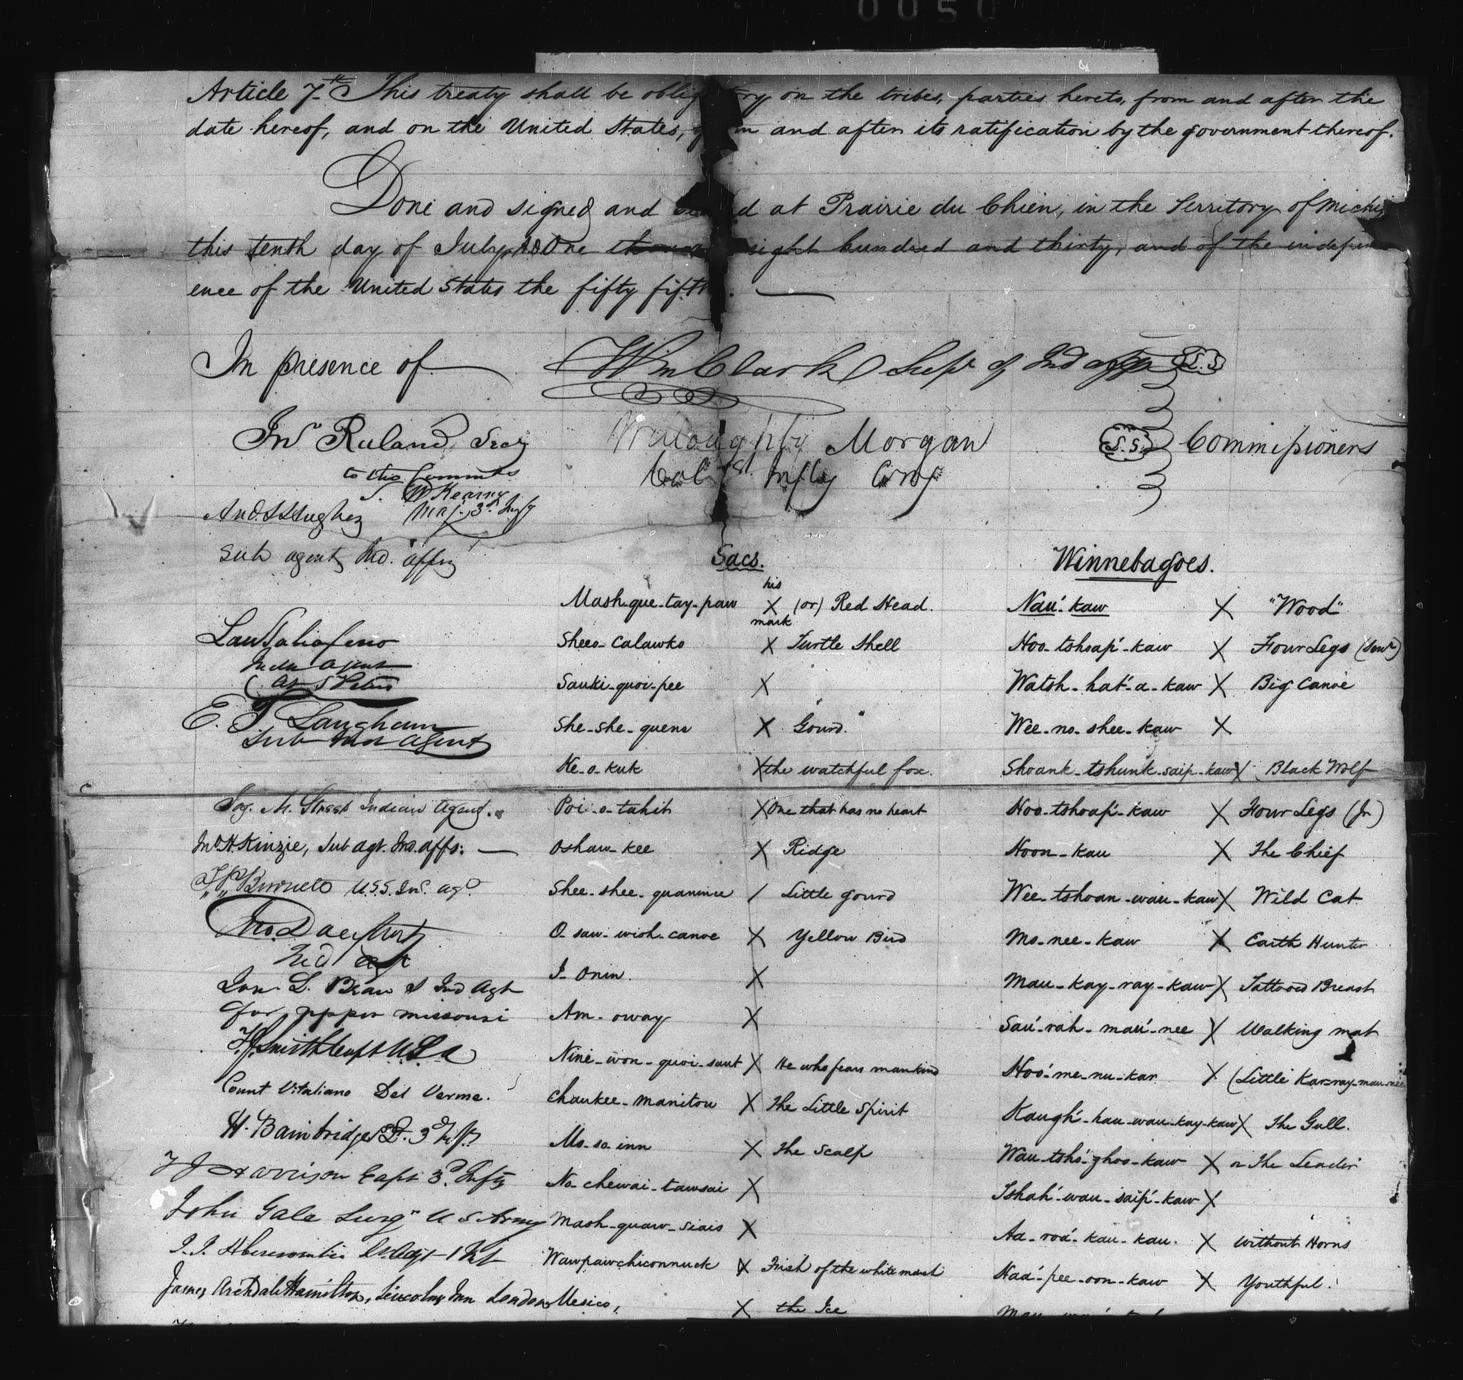 0050
Article 7th This treaty shall be oblig ry on the tribes, parties hereto, from and after the
date hereof, and on the United States, m and after its ratification by the government thereof.
Done and signed and d at Prairie du Chien, in the Territory of Michi
this tenth day of July, AD One eight hundred and thirty, and of the indepen
ence of the United States the fifty fifth.
In presence of
Wm Clark Supt of Ind affrs S.S
Jno Ruland, Secy
to the Commrs
Willoughby Morgan
Col 1st Infy Army
S.S. Commissioners
S. W Kearny
Maj. 3d Infy
And. S Hughes
Sub agent Ind affrs
Law Taliaferro
Indn agent
at St Peters
E. T Langham
Sub Indn agent
Jos. M. Street Indian Agent.
Jno H Kinzie, Sub agt. Ind. affs.
T. P. Burnett U.S.S. In. agt.
Ind agt
Jon L. Bean S Ind Agt
for upper missouri
H. J. Smith Capt U S A
Count Vitaliano Del Verme.
H. Bainbridge Lt. 3d Inf.
T J Harrison Capt 3d Infty
John Gale Surgn U S Army
J. J. Abercrombie Lt Adjt 1 Inf
James Archdale Hamilton, Lincolns Inn London
Sacs.
Mash-que-tay-paw his X mark (or) Red Head.
Sheeo Calawko X Turtle Shell
Sauki-quoi-pee X
She-she-quens X "Gourd."
Ke-o-kuk X the watchful fox.
Poi-o-tahit X One that has no heart
Oshaw-kee X Ridge
Shee-shee-quanince / Little gourd
O-saw-wish-canoe X Yellow Bird
I-onin. X
Am-oway X
Nine-won-quoi-saut X He who fears mankind
Chaukee-manitou X The Little Spirit
Mo-so-inn X The Scalp
No-chewai-tawsai X
Mash-quaw-siais X
Wawpawchiconnuck X Fish of the white marsh
Mesico, X the Ice
Winnebagoes.
Nau'-kaw X "Wood"
Hoo-tshoap'-kaw X Four Legs (Senr)
Watsh-hat'-a-kaw X Big Canoe
Wee-no-shee-kaw X
Shoank-tshunk-saip-kaw X Black Wolf
Hoo-tshoap'-kaw X Four Legs (Jr)
Hoon-kau X The Chief
Wee-tshoan-wau-kaw X Wild Cat
Mo-nee-kaw X Earth Hunter
Mau-kay-ray-kaw X Tattooed Breast
Sau'-rah-mau'-nee X Walking mat
Hoo'-me-nu-kar X (Little Karray-mau-nee
Kaugh'-kau-wau-kay-kaw X The Gull.
Wau-tsho'-ghoo-kaw X or The Leader
Tshah'-wau-saip'-kaw X
Aa-roa'-kau-kau. X without Horns
Haa'-pee-oon-kaw X Youthful.